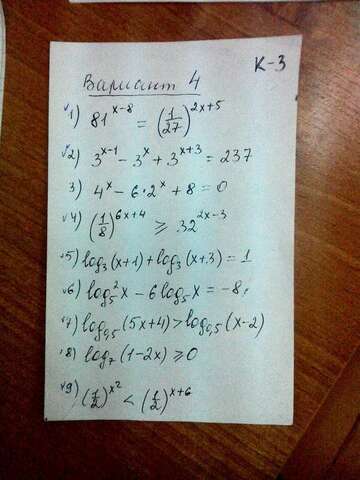 К-3
Вариант 4
1) 81^(x-8) = (1/27)^(2x+5)
2) 3^(x-1) - 3^x + 3^(x+3) = 237
3) 4^x - 6·2^x + 8 = 0
4) (1/8)^(6x+4) ≥ 32^(2x-3)
5) log₃(x+1) + log₃(x+3) = 1
6) log₅²x - 6log₅x = -8;
7) log₀,₅(5x+4) > log₀,₅(x-2)
8) log₇(1-2x) ≥ 0
9) (1/2)^(x²) < (1/2)^(x+6)